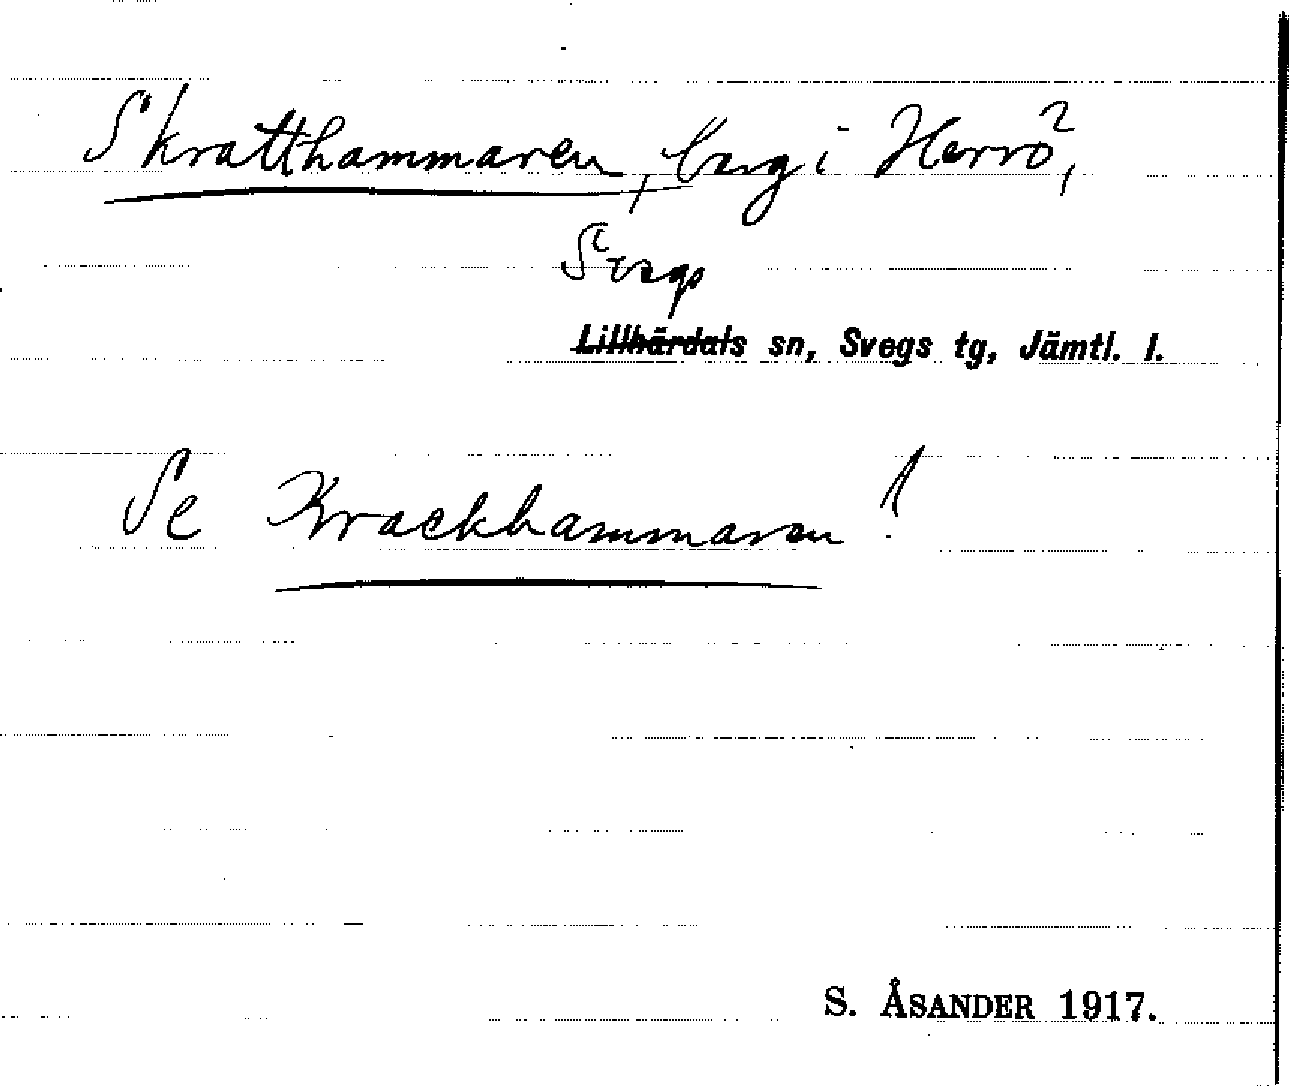 Skratthammaren, berg i Herrö,
Svegs
Lillhärdals sn, Svegs tg, Jämtl. l.
Se Krackhammaren!
S. ÅSANDER 1917.